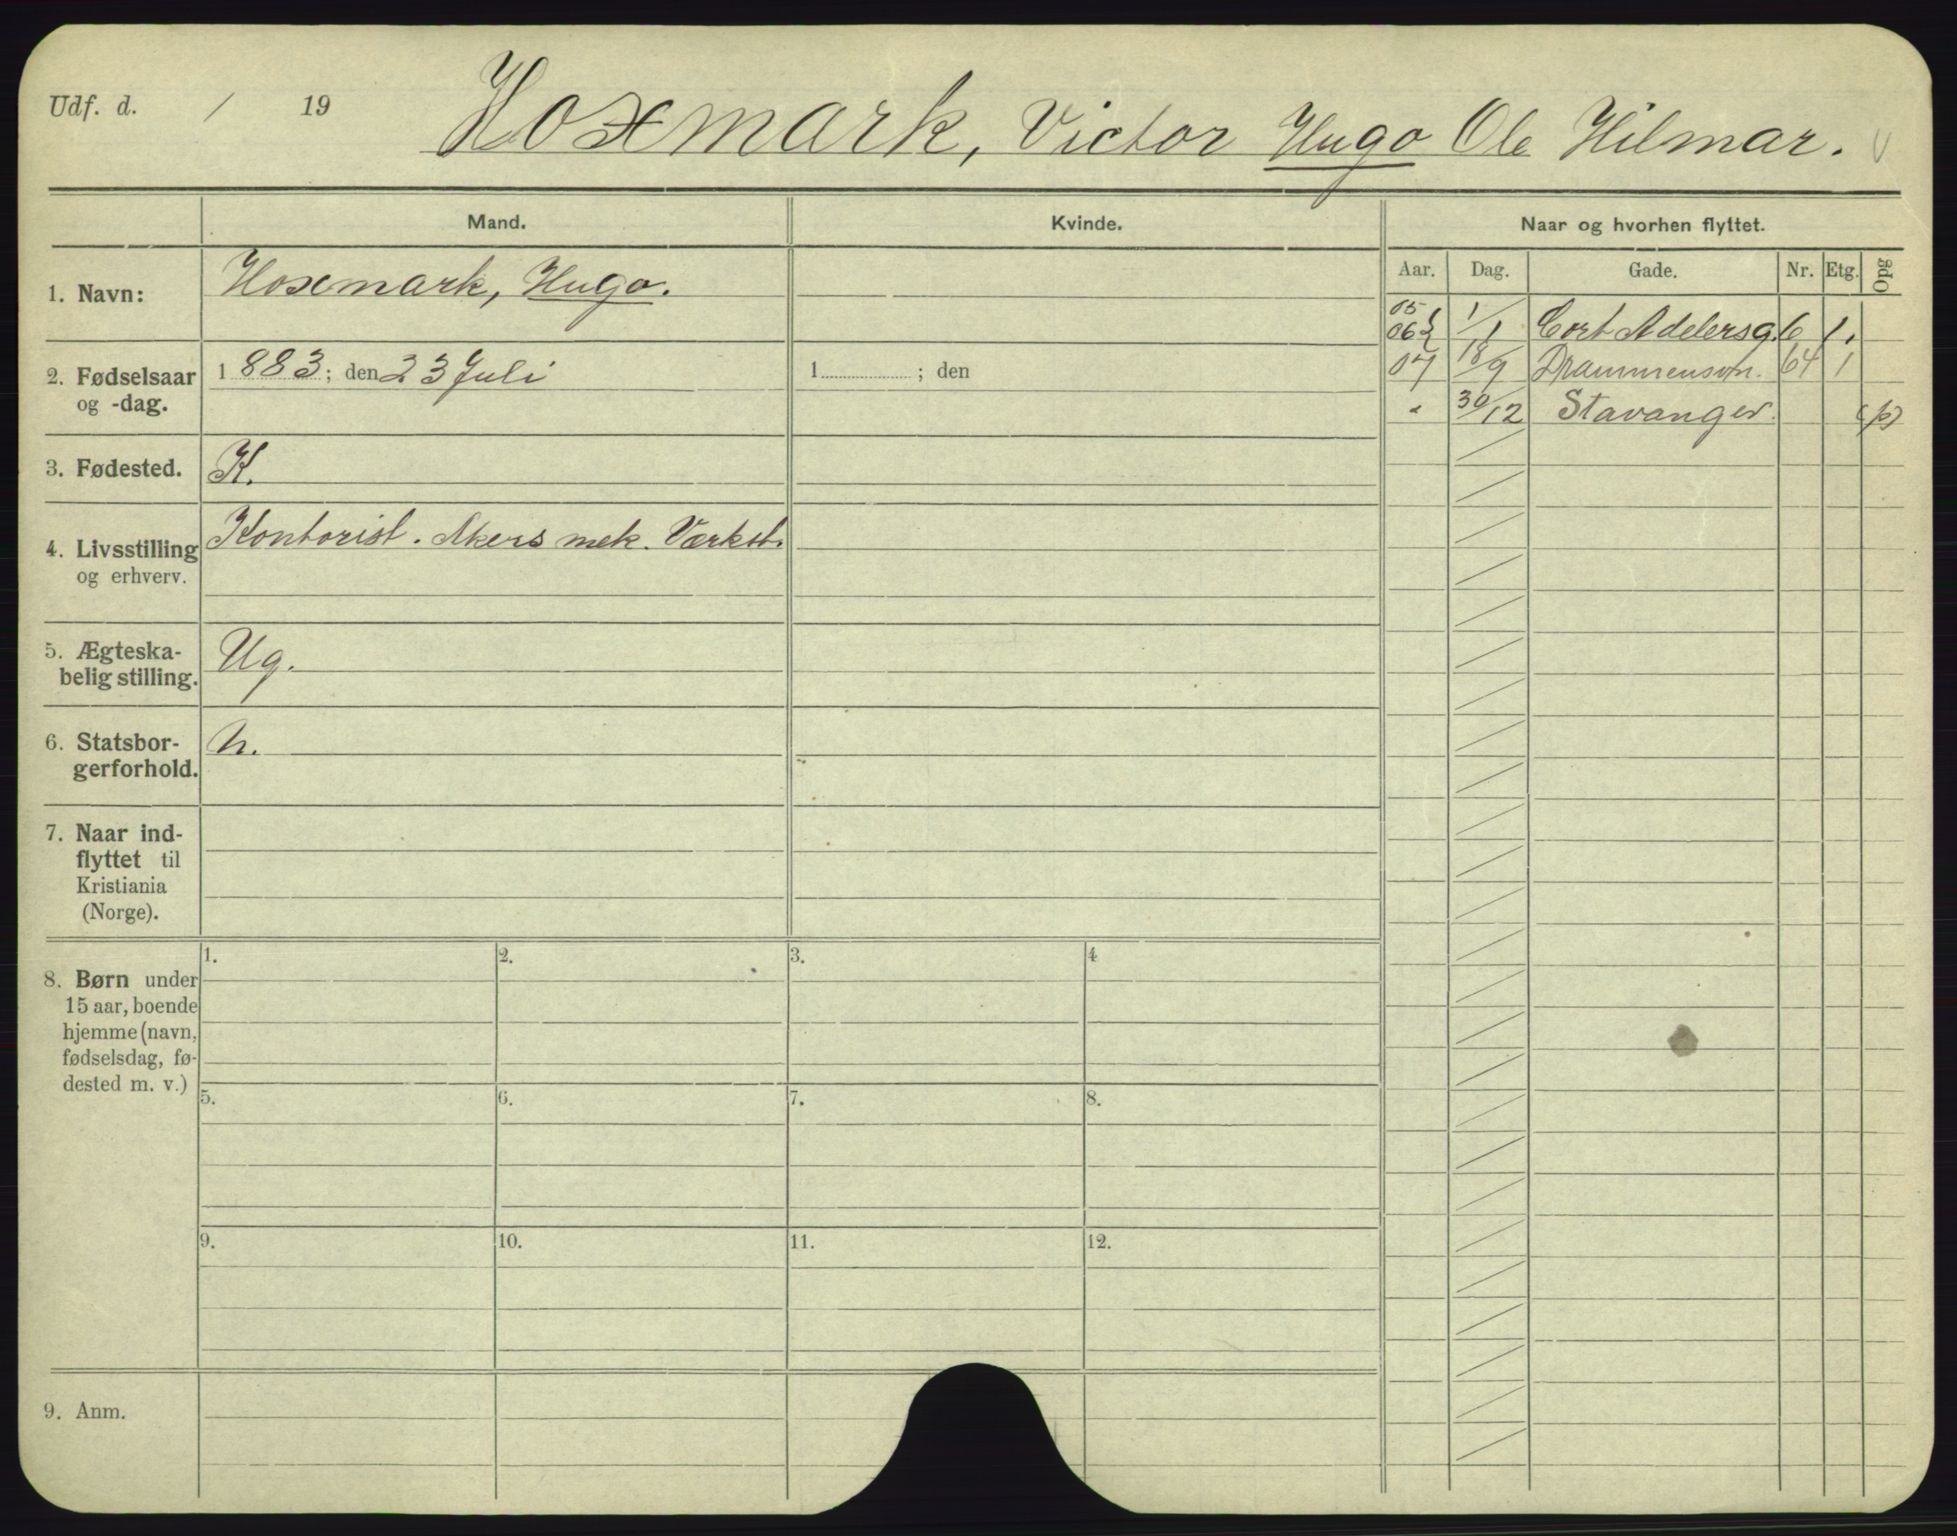 Udf. d. / 19
Hoxmark, Victor Hugo Ole Hilmar.
Mand.
Kvinde.
Naar og hvorhen flyttet.
Aar. Dag. Gade. Nr. Etg. Opg
1. Navn: Hoxmark, Hugo.
05
06 1/1 Cort Adelersg. 6 1.
07 18/9 Drammensvn. 64 1
" 30/12 Stavanger. (p)
2. Fødselsaar 1883; den 23 Juli
1 ; den
og -dag.
3. Fødested. K.
4. Livsstilling Kontorist. Akers mek. Værkst.
og erhverv.
5. Ægteska-
belig stilling. Ug.
6. Statsbor-
gerforhold. N.
7. Naar ind-
flyttet til
Kristiania
(Norge).
8. Børn under
15 aar, boende
hjemme (navn,
fødselsdag, fø-
dested m. v.)
1. 2. 3. 4
5. 6. 7. 8.
9. 10. 11. 12.
9. Anm.